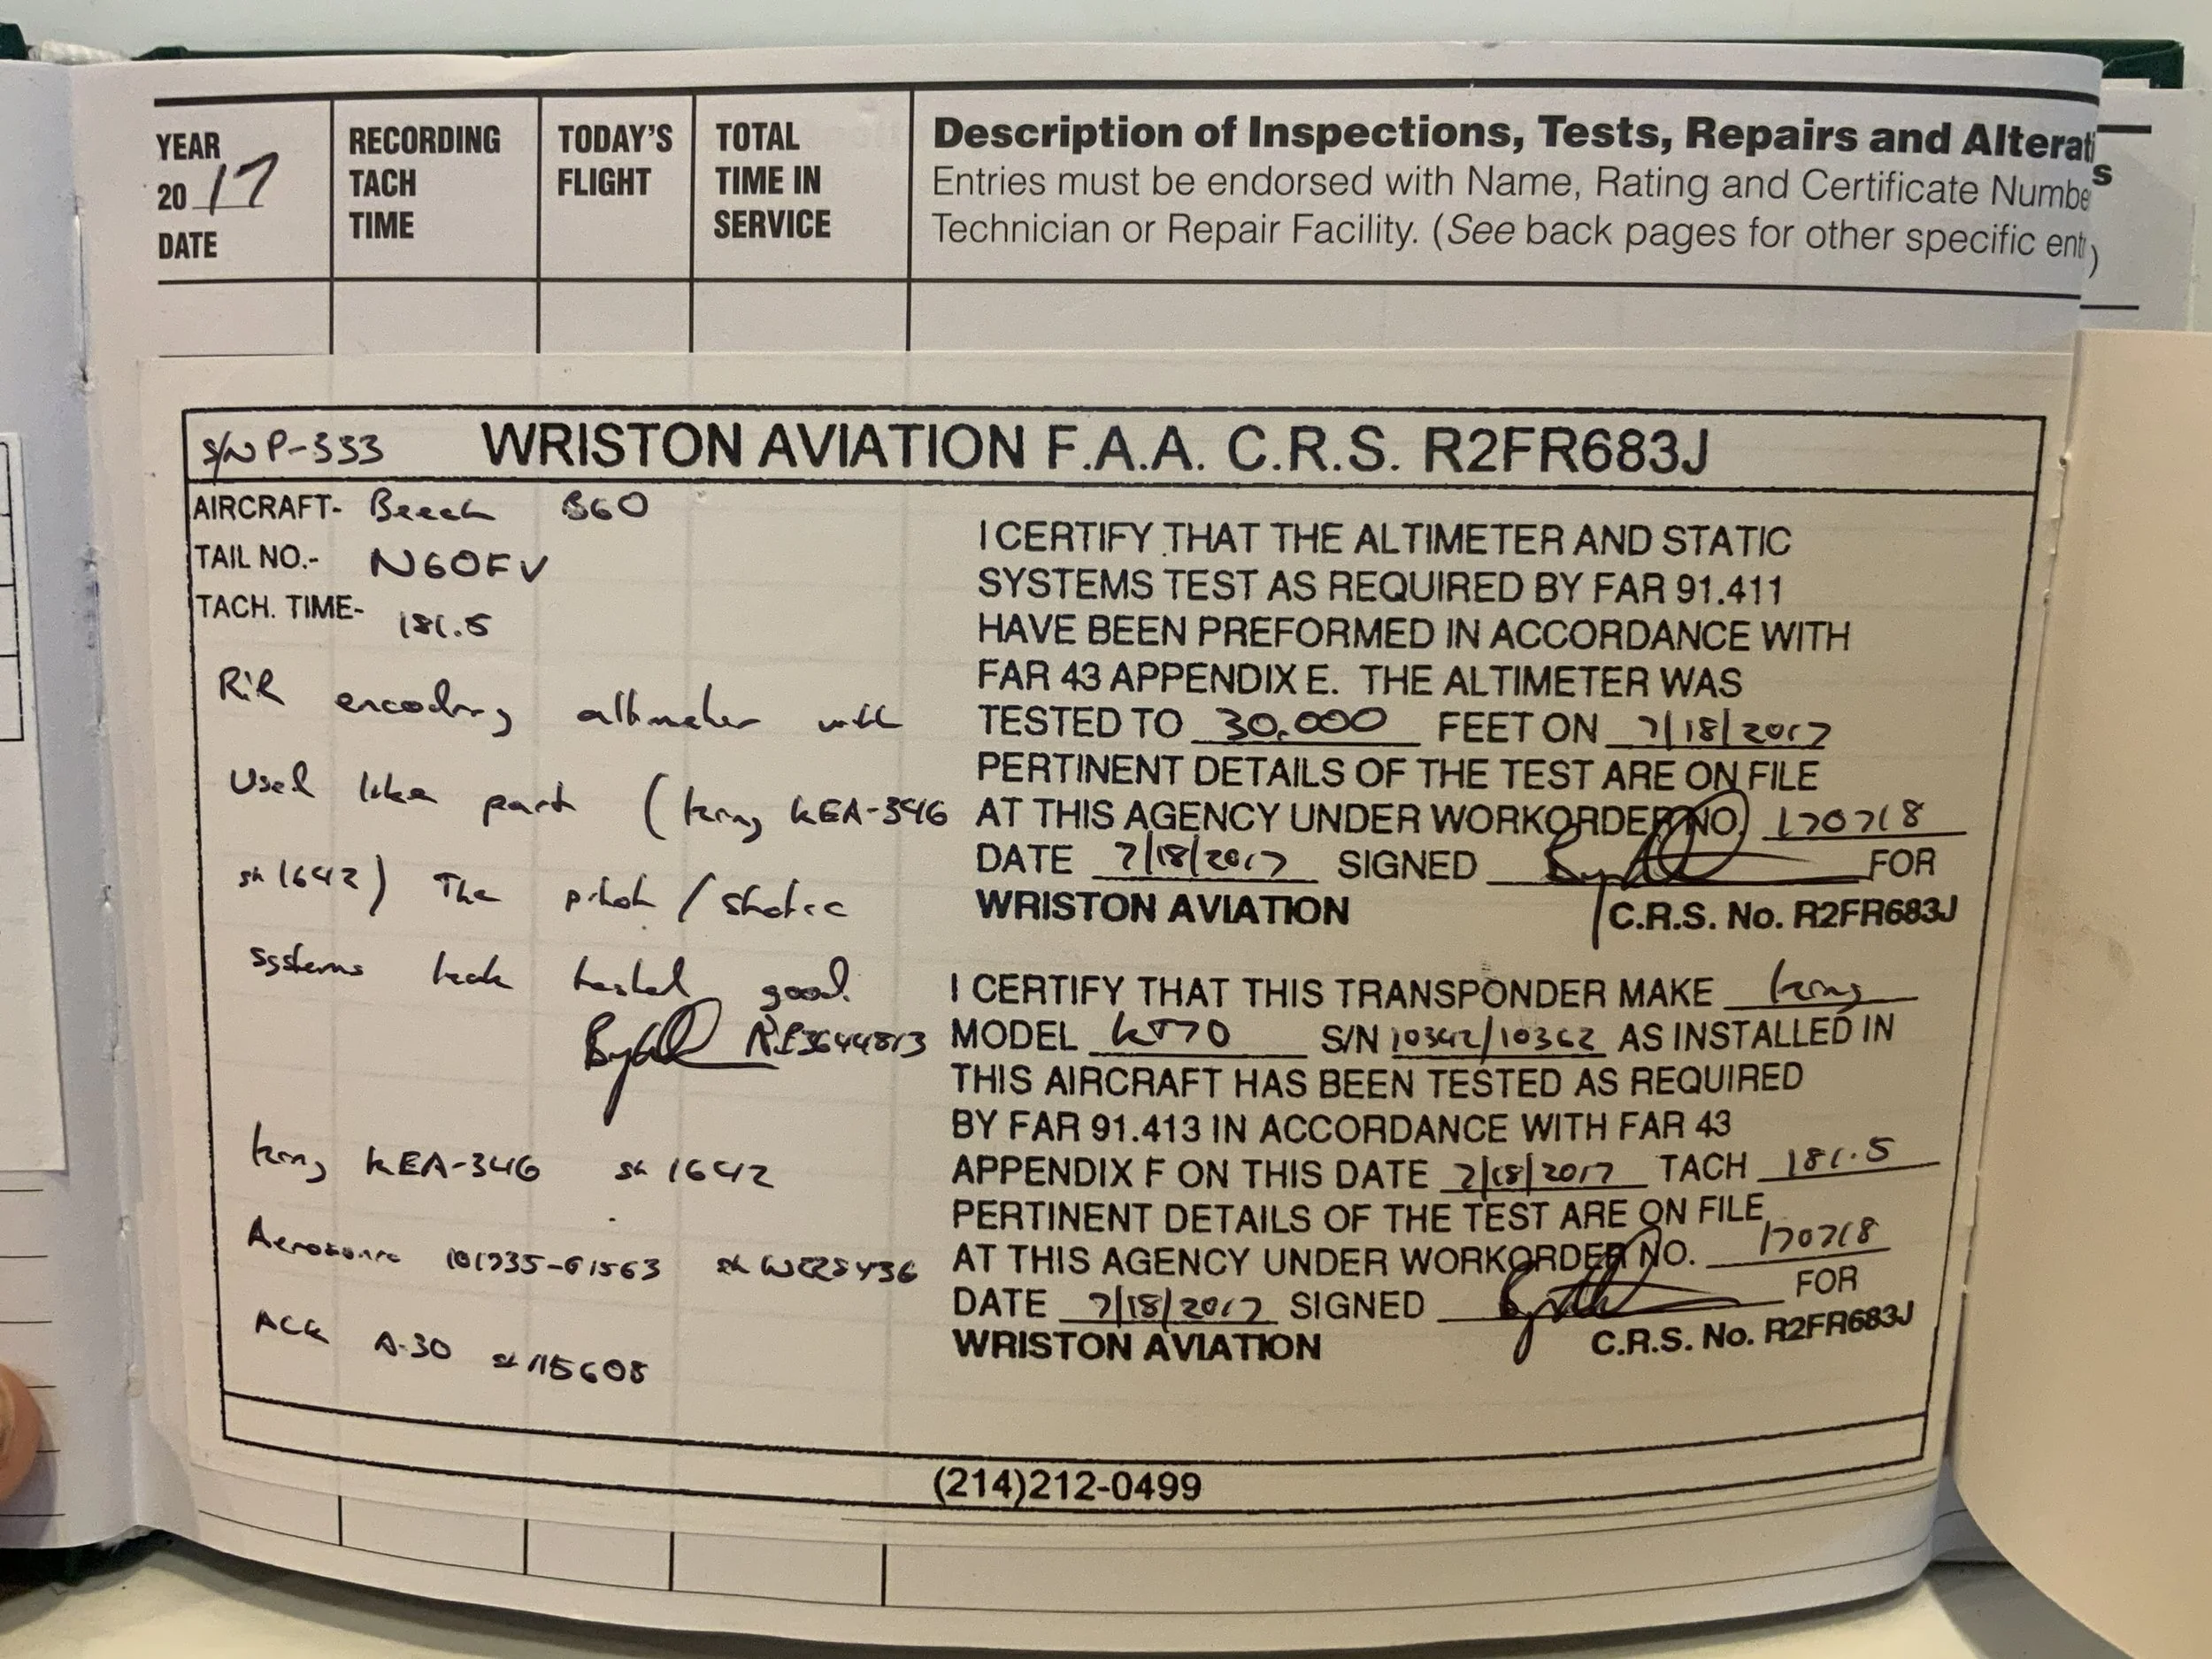 YEAR
2017
DATE
RECORDING
TACH
TIME
TODAY'S
FLIGHT
TOTAL
TIME IN
SERVICE
Description of Inspections, Tests, Repairs and Alterati s
Entries must be endorsed with Name, Rating and Certificate Numbe
Technician or Repair Facility. (See back pages for other specific ent )
S/N P-333
WRISTON AVIATION F.A.A. C.R.S. R2FR683J
AIRCRAFT- Beech B60
TAIL NO.- N60FV
TACH. TIME- 181.5
R&R encoding altimeter with
Used like part (King KEA-346
sn 1642) The pitot / static
systems leak tested good.
King KEA-346 sn 1642
Aerosonic
ACK A-30 sn 115608
I CERTIFY THAT THE ALTIMETER AND STATIC
SYSTEMS TEST AS REQUIRED BY FAR 91.411
HAVE BEEN PREFORMED IN ACCORDANCE WITH
FAR 43 APPENDIX E. THE ALTIMETER WAS
TESTED TO 30,000 FEET ON 7/18/2017
PERTINENT DETAILS OF THE TEST ARE ON FILE
AT THIS AGENCY UNDER WORKORDER NO. 170718
DATE 7/18/2017 SIGNED FOR
WRISTON AVIATION C.R.S. No. R2FR683J
I CERTIFY THAT THIS TRANSPONDER MAKE King
MODEL KT70 S/N 10342/10362 AS INSTALLED IN
THIS AIRCRAFT HAS BEEN TESTED AS REQUIRED
BY FAR 91.413 IN ACCORDANCE WITH FAR 43
APPENDIX F ON THIS DATE 7/18/2017 TACH 181.5
PERTINENT DETAILS OF THE TEST ARE ON FILE
AT THIS AGENCY UNDER WORKORDER NO. 170718
DATE 7/18/2017 SIGNED FOR
WRISTON AVIATION C.R.S. No. R2FR683J
(214)212-0499